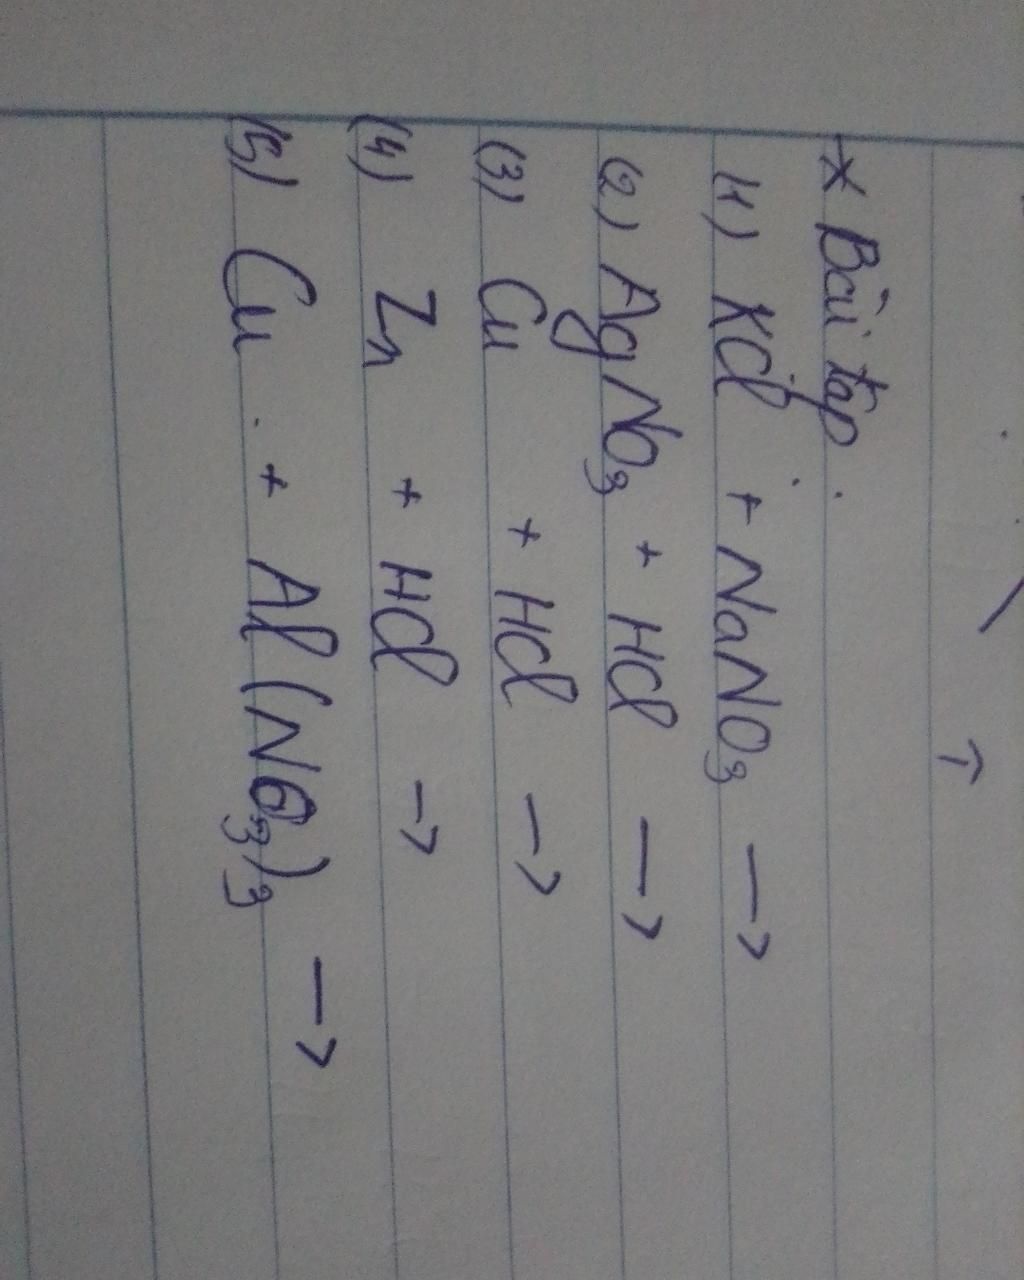 * Bài tập
(1) KCl + NaNO3 →
(2) AgNO3 + HCl →
(3) Cu + HCl →
(4) Zn + HCl →
(5) Cu + Al(NO3)3 →